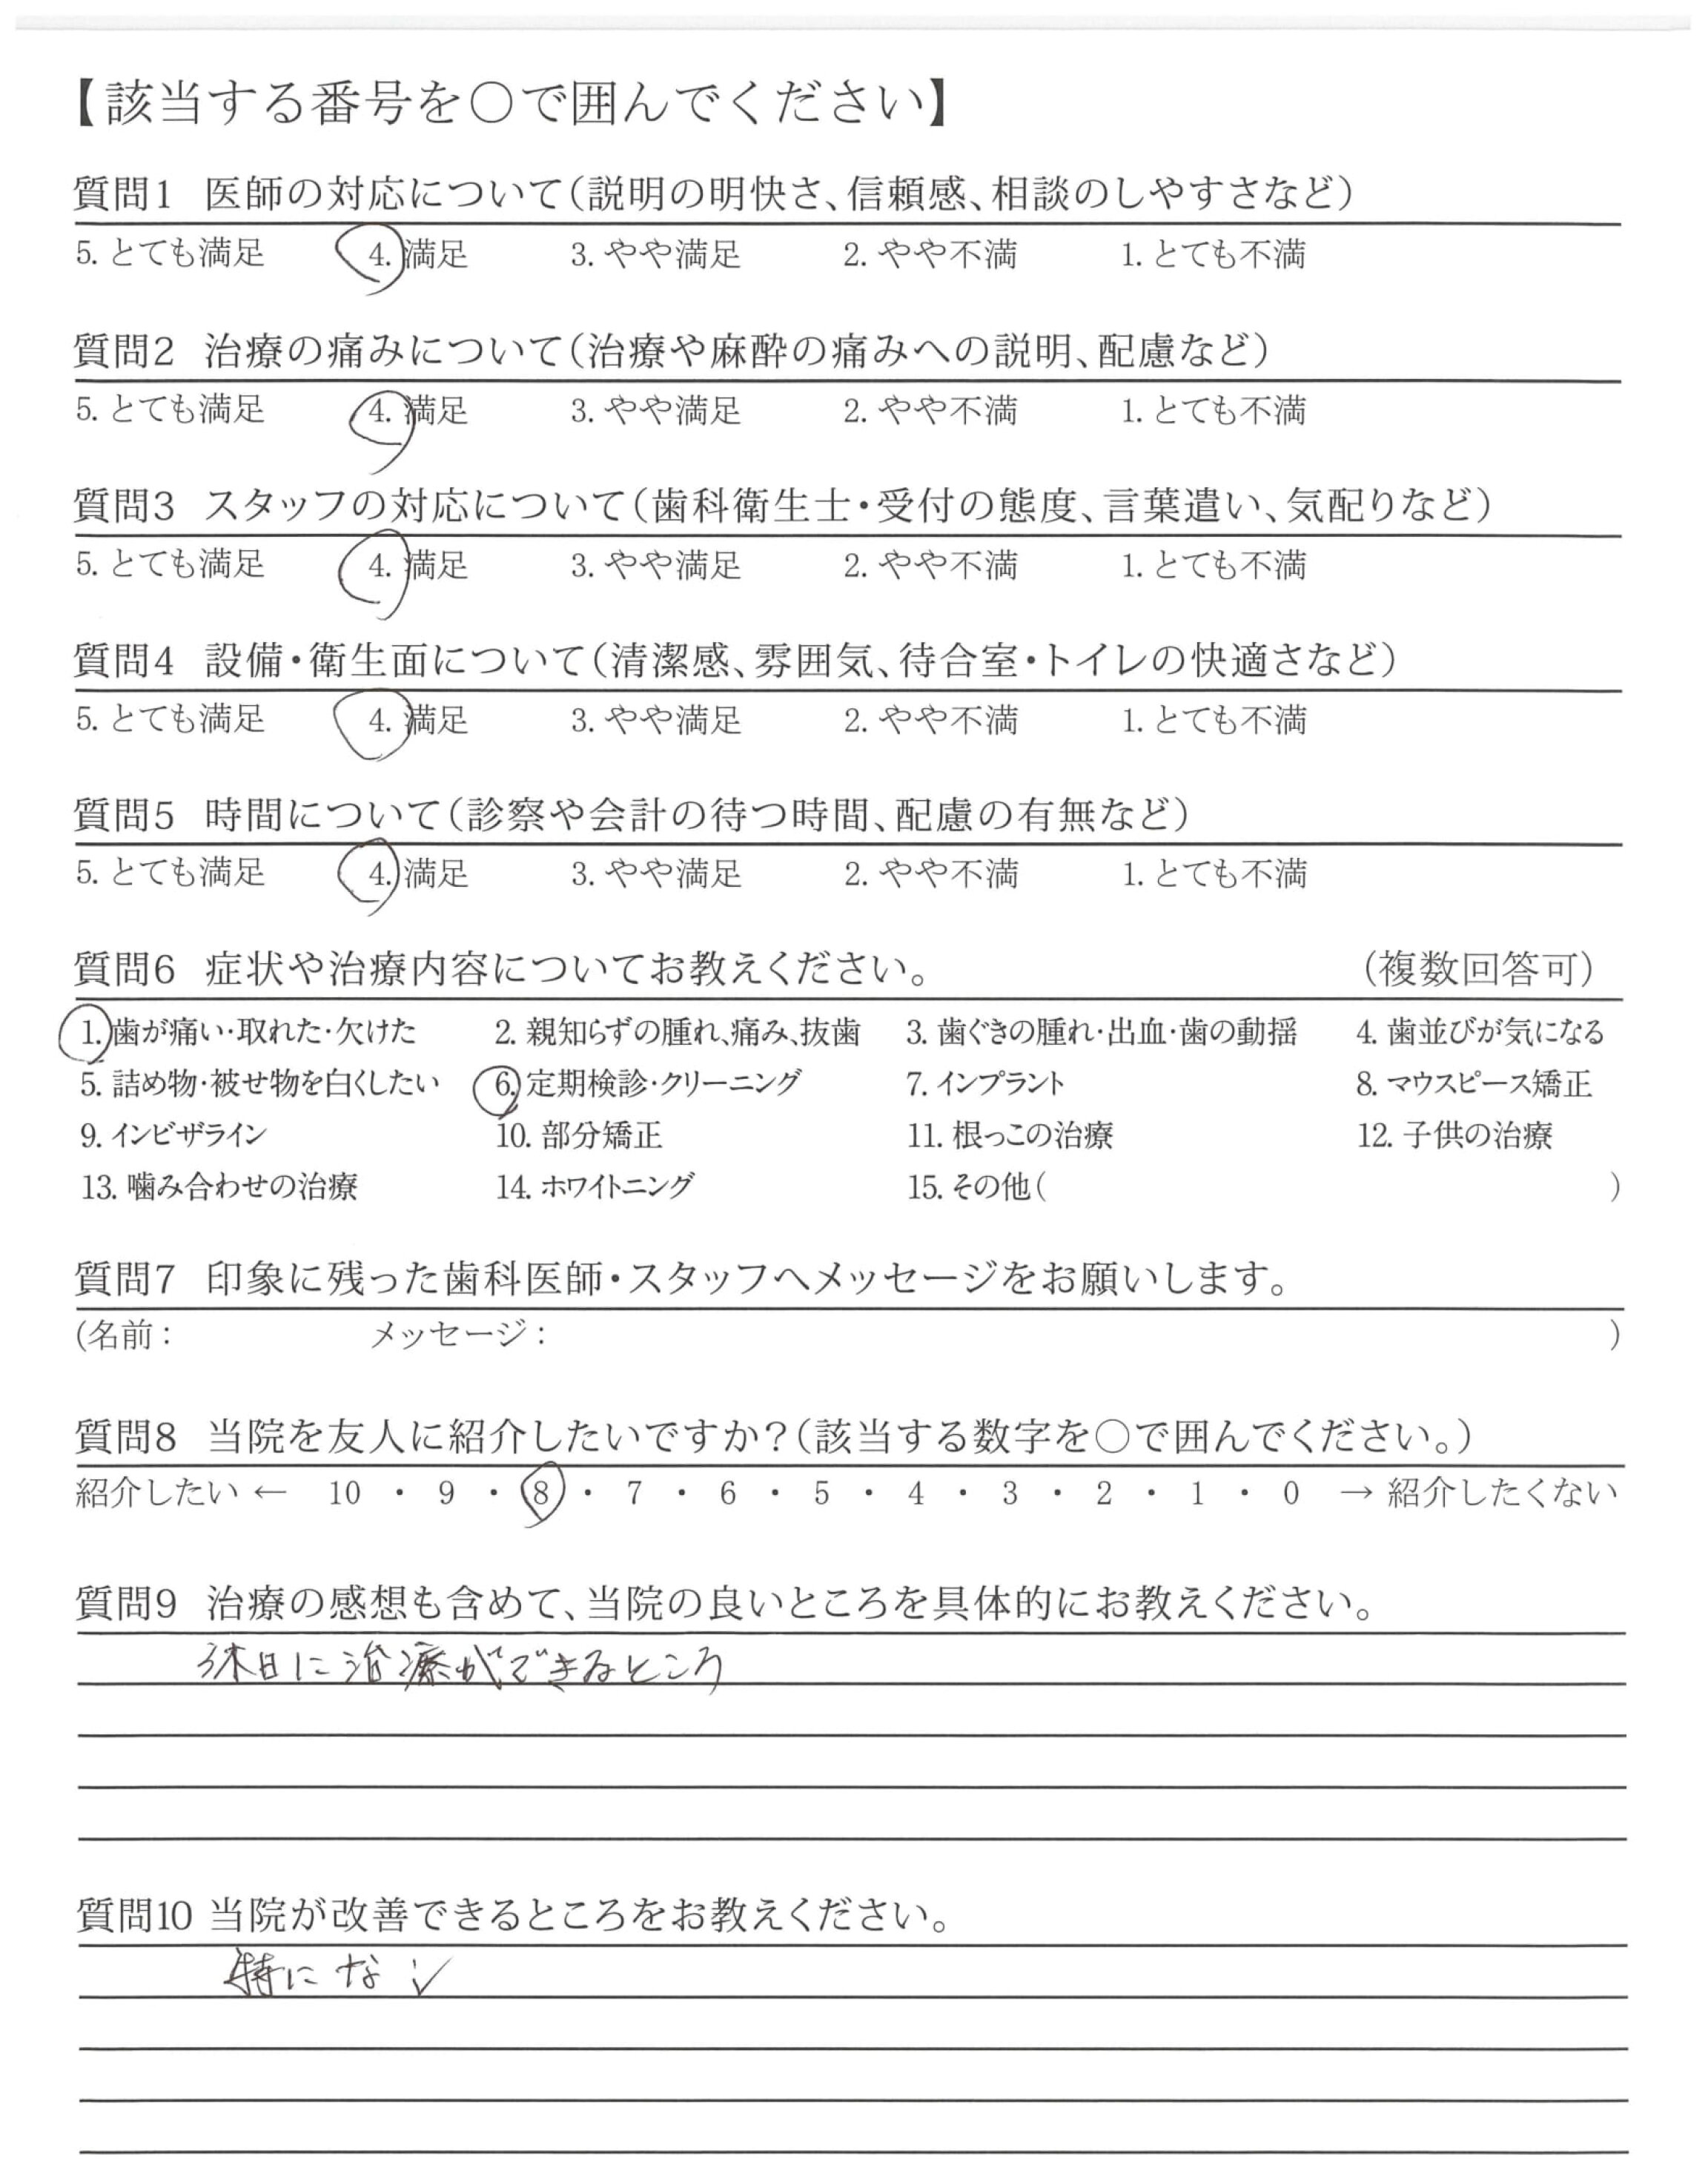 【該当する番号を〇で囲んでください】
質問1 医師の対応について(説明の明快さ、信頼感、相談のしやすさなど)
5. とても満足 4. 満足 3. やや満足 2. やや不満 1. とても不満
質問2 治療の痛みについて(治療や麻酔の痛みへの説明、配慮など)
5. とても満足 4. 満足 3. やや満足 2. やや不満 1. とても不満
質問3 スタッフの対応について(歯科衛生士・受付の態度、言葉遣い、気配りなど)
5. とても満足 4. 満足 3. やや満足 2. やや不満 1. とても不満
質問4 設備・衛生面について(清潔感、雰囲気、待合室・トイレの快適さなど)
5. とても満足 4. 満足 3. やや満足 2. やや不満 1. とても不満
質問5 時間について(診察や会計の待つ時間、配慮の有無など)
5. とても満足 4. 満足 3. やや満足 2. やや不満 1. とても不満
質問6 症状や治療内容についてお教えください。 (複数回答可)
1. 歯が痛い・取れた・欠けた 2. 親知らずの腫れ、痛み、抜歯 3. 歯ぐきの腫れ・出血・歯の動揺 4. 歯並びが気になる
5. 詰め物・被せ物を白くしたい 6. 定期検診・クリーニング 7. インプラント 8. マウスピース矯正
9. インビザライン 10. 部分矯正 11. 根っこの治療 12. 子供の治療
13. 噛み合わせの治療 14. ホワイトニング 15. その他( )
質問7 印象に残った歯科医師・スタッフへメッセージをお願いします。
(名前: メッセージ: )
質問8 当院を友人に紹介したいですか?(該当する数字を〇で囲んでください。)
紹介したい ← 10 ・ 9 ・ 8 ・ 7 ・ 6 ・ 5 ・ 4 ・ 3 ・ 2 ・ 1 ・ 0 → 紹介したくない
質問9 治療の感想も含めて、当院の良いところを具体的にお教えください。
休日に治療ができるところ
質問10 当院が改善できるところをお教えください。
特にない